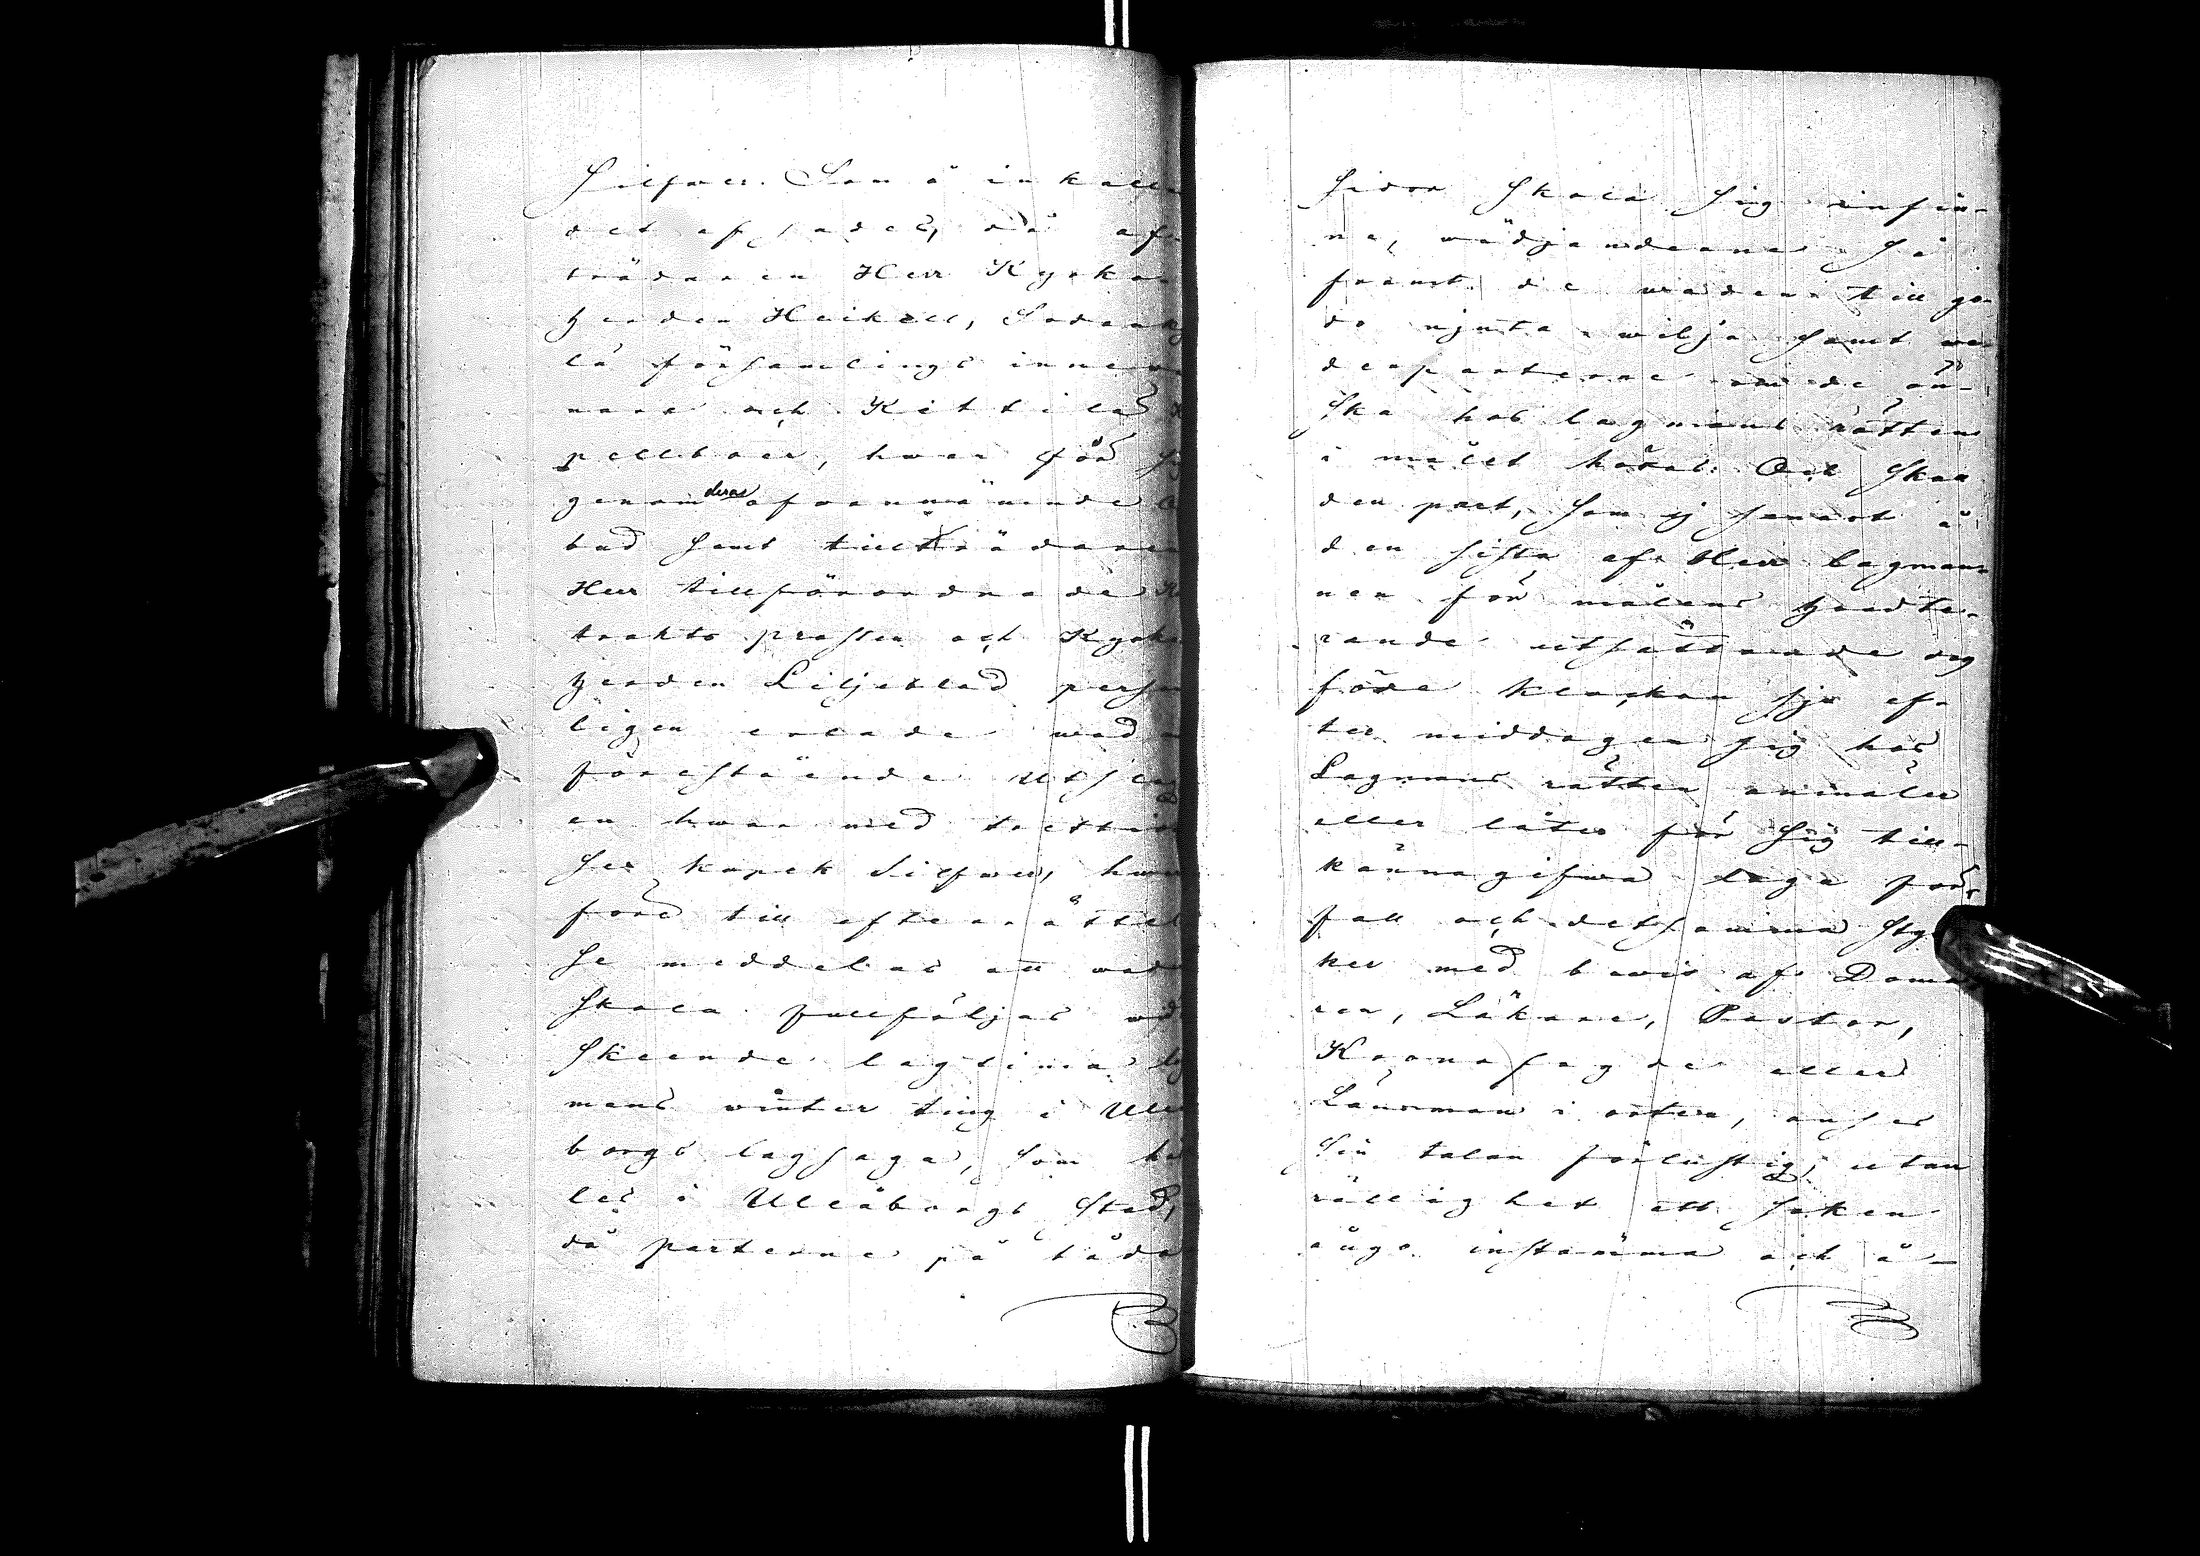 Silfwer. Som å inkalle
det afsades, då af-
trädaren Herr Kyrko-
herden Heikell, Sodanky
lä församlings inne wå
nare och Kittilä Ka
pellboer, hwar för sig
genom deras ofwannämnde om
bud samt tillträdaren
Herr tillförordnade Kon
trakts prosten och Kyrko
herden Liljeblad person
ligen erlade wad
förestående Utslag
en hwar med tretti
sex kopek Silfwer, hwar
före till efterrättel
se meddelas att wad
skola fullföljas wid
skeende lagtima lag
mans winter ting i Uleå
borgs lagsaga, som hål
les i Uleåborgs Stad,
då parterne på båda
sidor skola sig infin-
na, wädjanderne så
framt de waden till go-
do njuta wilja samt we-
derparterne om de ön-
ska hos lagmans rätten
i målet höras. Och skall
den part, som ej senast å
den sista af Herr Lagman-
nen för målens handte-
rande utsättande dag
före klockan sju ef-
ter middagen sig hos
Lagmans rätten anmäler
eller låter för sig till-
kännagifwa laga för-
fall och detsamma Styr-
ker med bewis af Doma-
ren, Läkare, Pastor,
Kronofogde eller
Länsman i orten, anses
sin talan förlustig, utan
rättighet att saken
ånyo instämma och å-